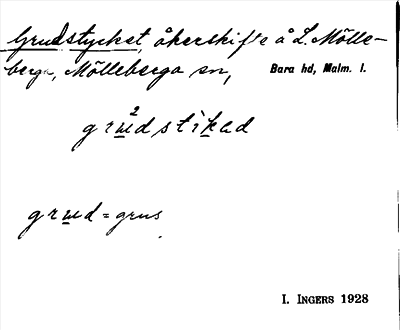 Grudstycket, åkerskifte å L. Mölle-
berga, Mölleberga sn, Bara hd, Malm. l.
grud²stikəd
grud = grus
I. INGERS 1928